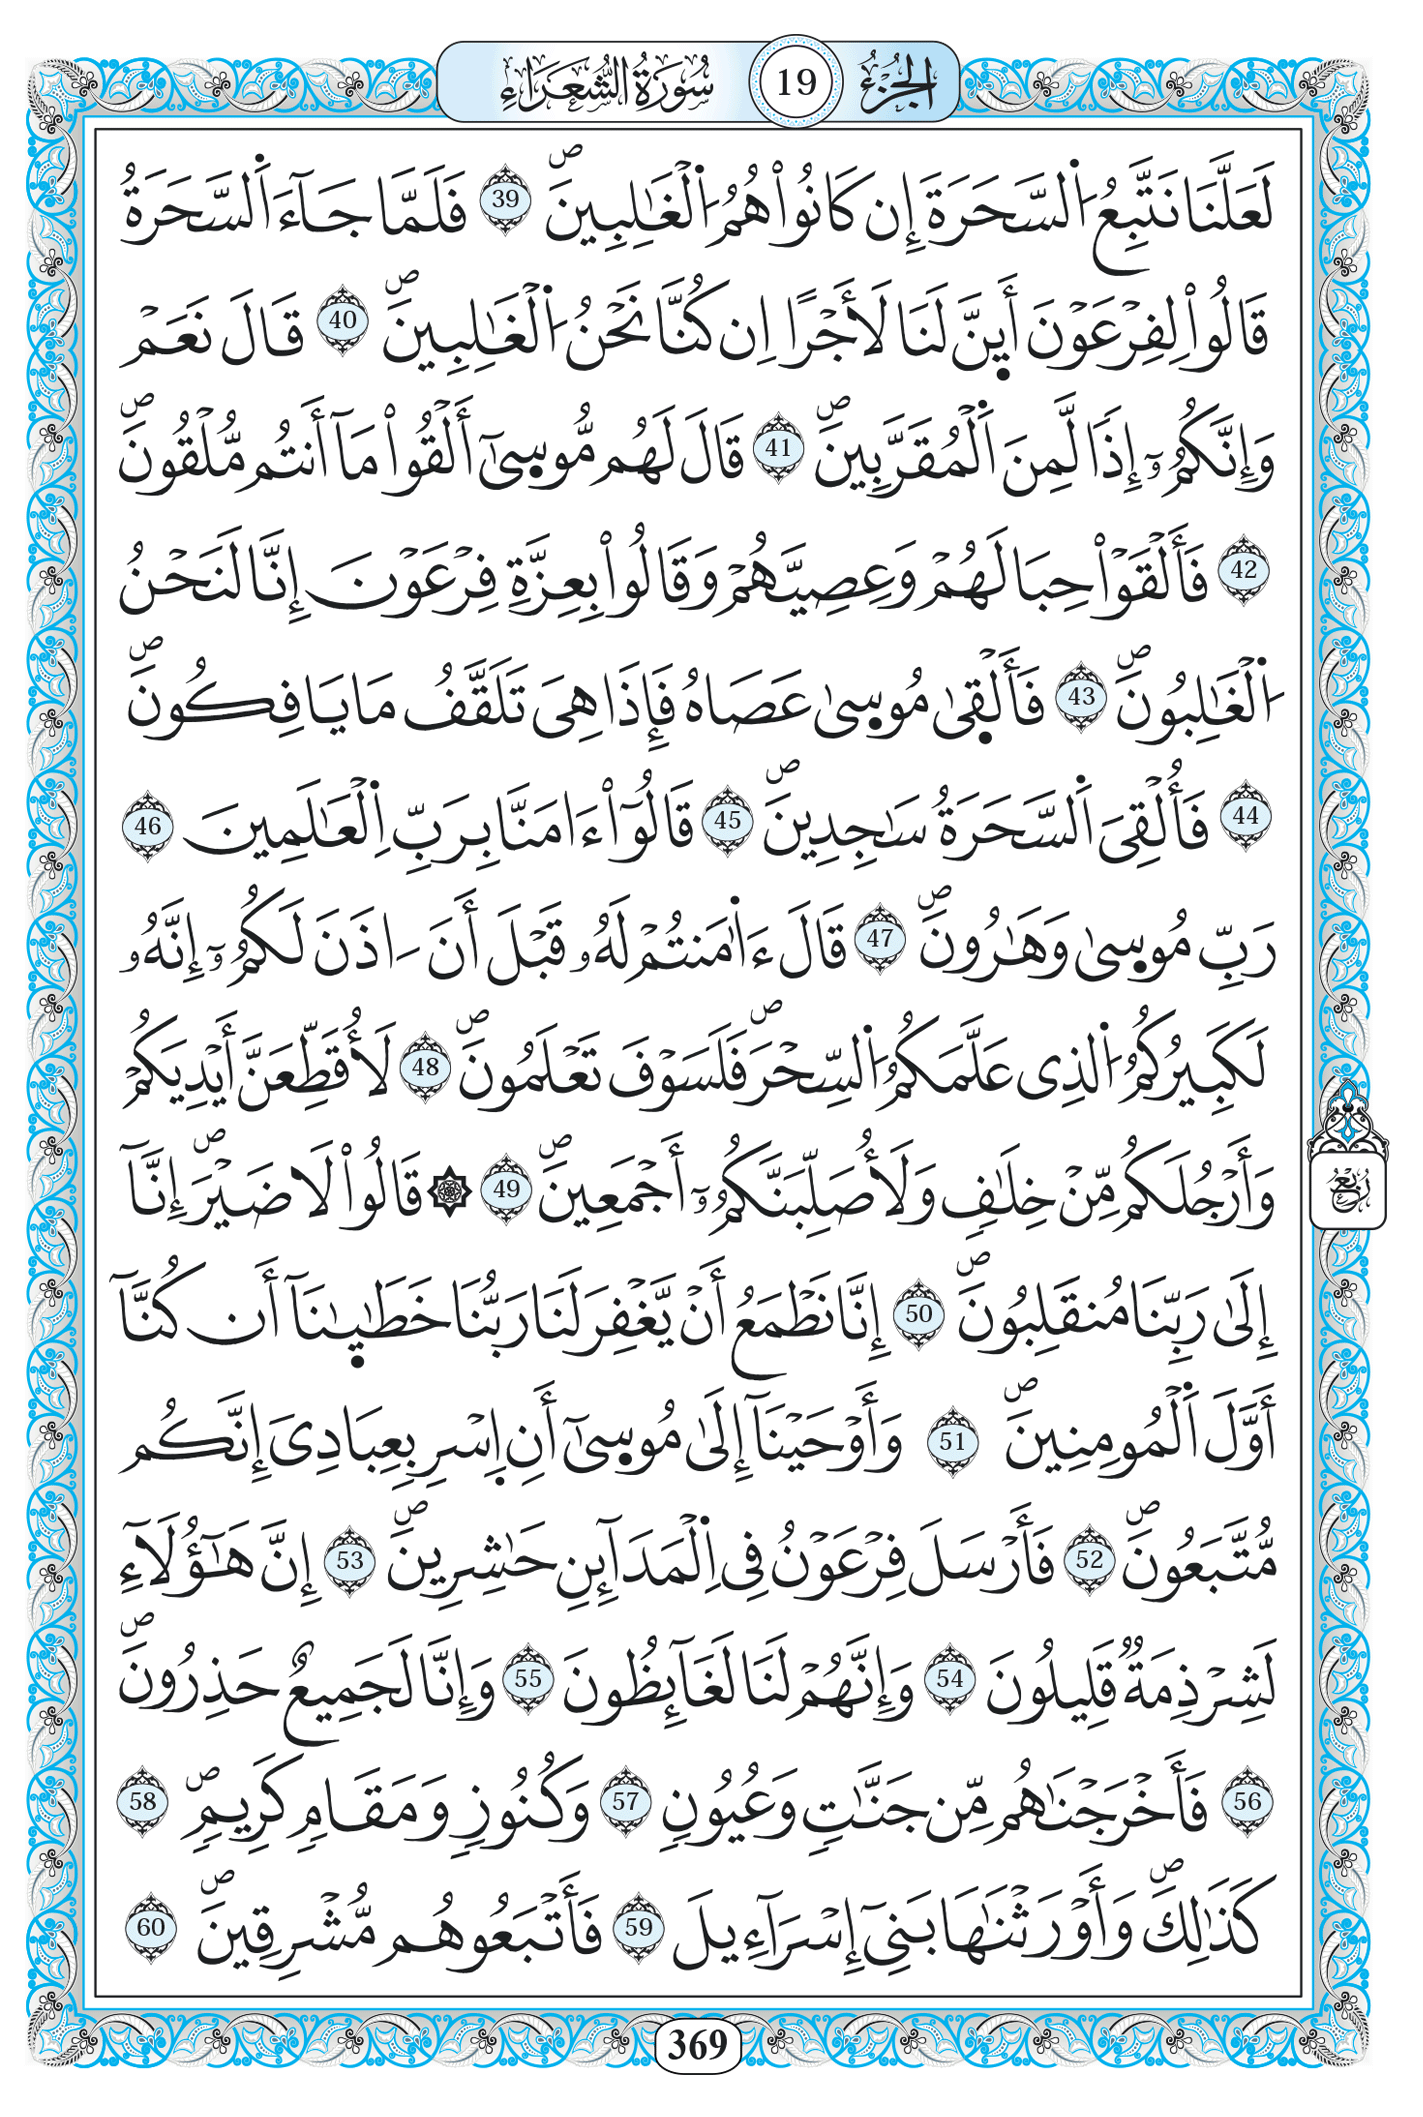 الجزء 19 سورة الشعراء
لَعَلَّنَا نَتَّبِعُ اُ۬لسَّحَرَةَ إِن كَانُواْ هُمُ اُ۬لْغَٰلِبِينَۖ 39 فَلَمَّا جَآءَ اَ۬لسَّحَرَةُ
قَالُواْ لِفِرْعَوْنَ أَئِنَّ لَنَا لَأَجْرًا اِن كُنَّا نَحْنُ اُ۬لْغَٰلِبِينَۖ 40 قَالَ نَعَمْ
وَإِنَّكُمُۥٓ إِذَا لَّمِنَ اَ۬لْمُقَرَّبِينَۖ 41 قَالَ لَهُم مُّوس۪ىٰٓ أَلْقُواْ مَآ أَنتُم مُّلْقُونَۖ
42 فَأَلْقَوْاْ حِبَالَهُمْ وَعِصِيَّهُمْ وَقَالُواْ بِعِزَّةِ فِرْعَوْنَ إِنَّا لَنَحْنُ
اُ۬لْغَٰلِبُونَۖ 43 فَأَلْق۪ىٰ مُوس۪ىٰ عَصَاهُ فَإِذَا هِىَ تَلَقَّفُ مَا يَافِكُونَۖ
44 فَأُلْقِىَ اَ۬لسَّحَرَةُ سَٰجِدِينَۖ 45 قَالُوٓاْ ءَامَنَّا بِرَبِّ اِ۬لْعَٰلَمِينَ 46
رَبِّ مُوس۪ىٰ وَهَٰرُونَۖ 47 قَالَ ءَا۬مَنتُمْ لَهُۥ قَبْلَ أَنَ اٰذَنَ لَكُمُۥٓ إِنَّهُۥ
لَكَبِيرُكُمُ اُ۬لذِى عَلَّمَكُمُ اُ۬لسِّحْرَۖ فَلَسَوْفَ تَعْلَمُونَۖ 48 لَأُقَطِّعَنَّ أَيْدِيَكُمْ
وَأَرْجُلَكُم مِّنْ خِلَٰفٍ وَلَأُصَلِّبَنَّكُمُۥٓ أَجْمَعِينَۖ 49 ۞ قَالُواْ لَا ضَيْرَۖ إِنَّآ
إِلَىٰ رَبِّنَا مُنقَلِبُونَۖ 50 إِنَّا نَطْمَعُ أَنْ يَّغْفِرَ لَنَا رَبُّنَا خَطَٰيٰ۪نَآ أَن كُنَّآ
أَوَّلَ اَ۬لْمُومِنِينَۖ 51 وَأَوْحَيْنَآ إِلَىٰ مُوس۪ىٰٓ أَنِ اِسْرِ بِعِبَادِىَ إِنَّكُم
مُّتَّبَعُونَۖ 52 فَأَرْسَلَ فِرْعَوْنُ فِى اِ۬لْمَدَآئِنِ حَٰشِرِينَۖ 53 إِنَّ هَٰٓؤُلَآءِ
لَشِرْذِمَةٌ قَلِيلُونَ 54 وَإِنَّهُمْ لَنَا لَغَآئِظُونَ 55 وَإِنَّا لَجَمِيعٌ حَذِرُونَۖ
56 فَأَخْرَجْنَٰهُم مِّن جَنَّٰتٍ وَعُيُونٍ 57 وَكُنُوزٍ وَمَقَامٍ كَرِيمٍۖ 58
كَذَٰلِكَۖ وَأَوْرَثْنَٰهَا بَنِىٓ إِسْرَآءِيلَ 59 فَأَتْبَعُوهُم مُّشْرِقِينَۖ 60
ربع
369